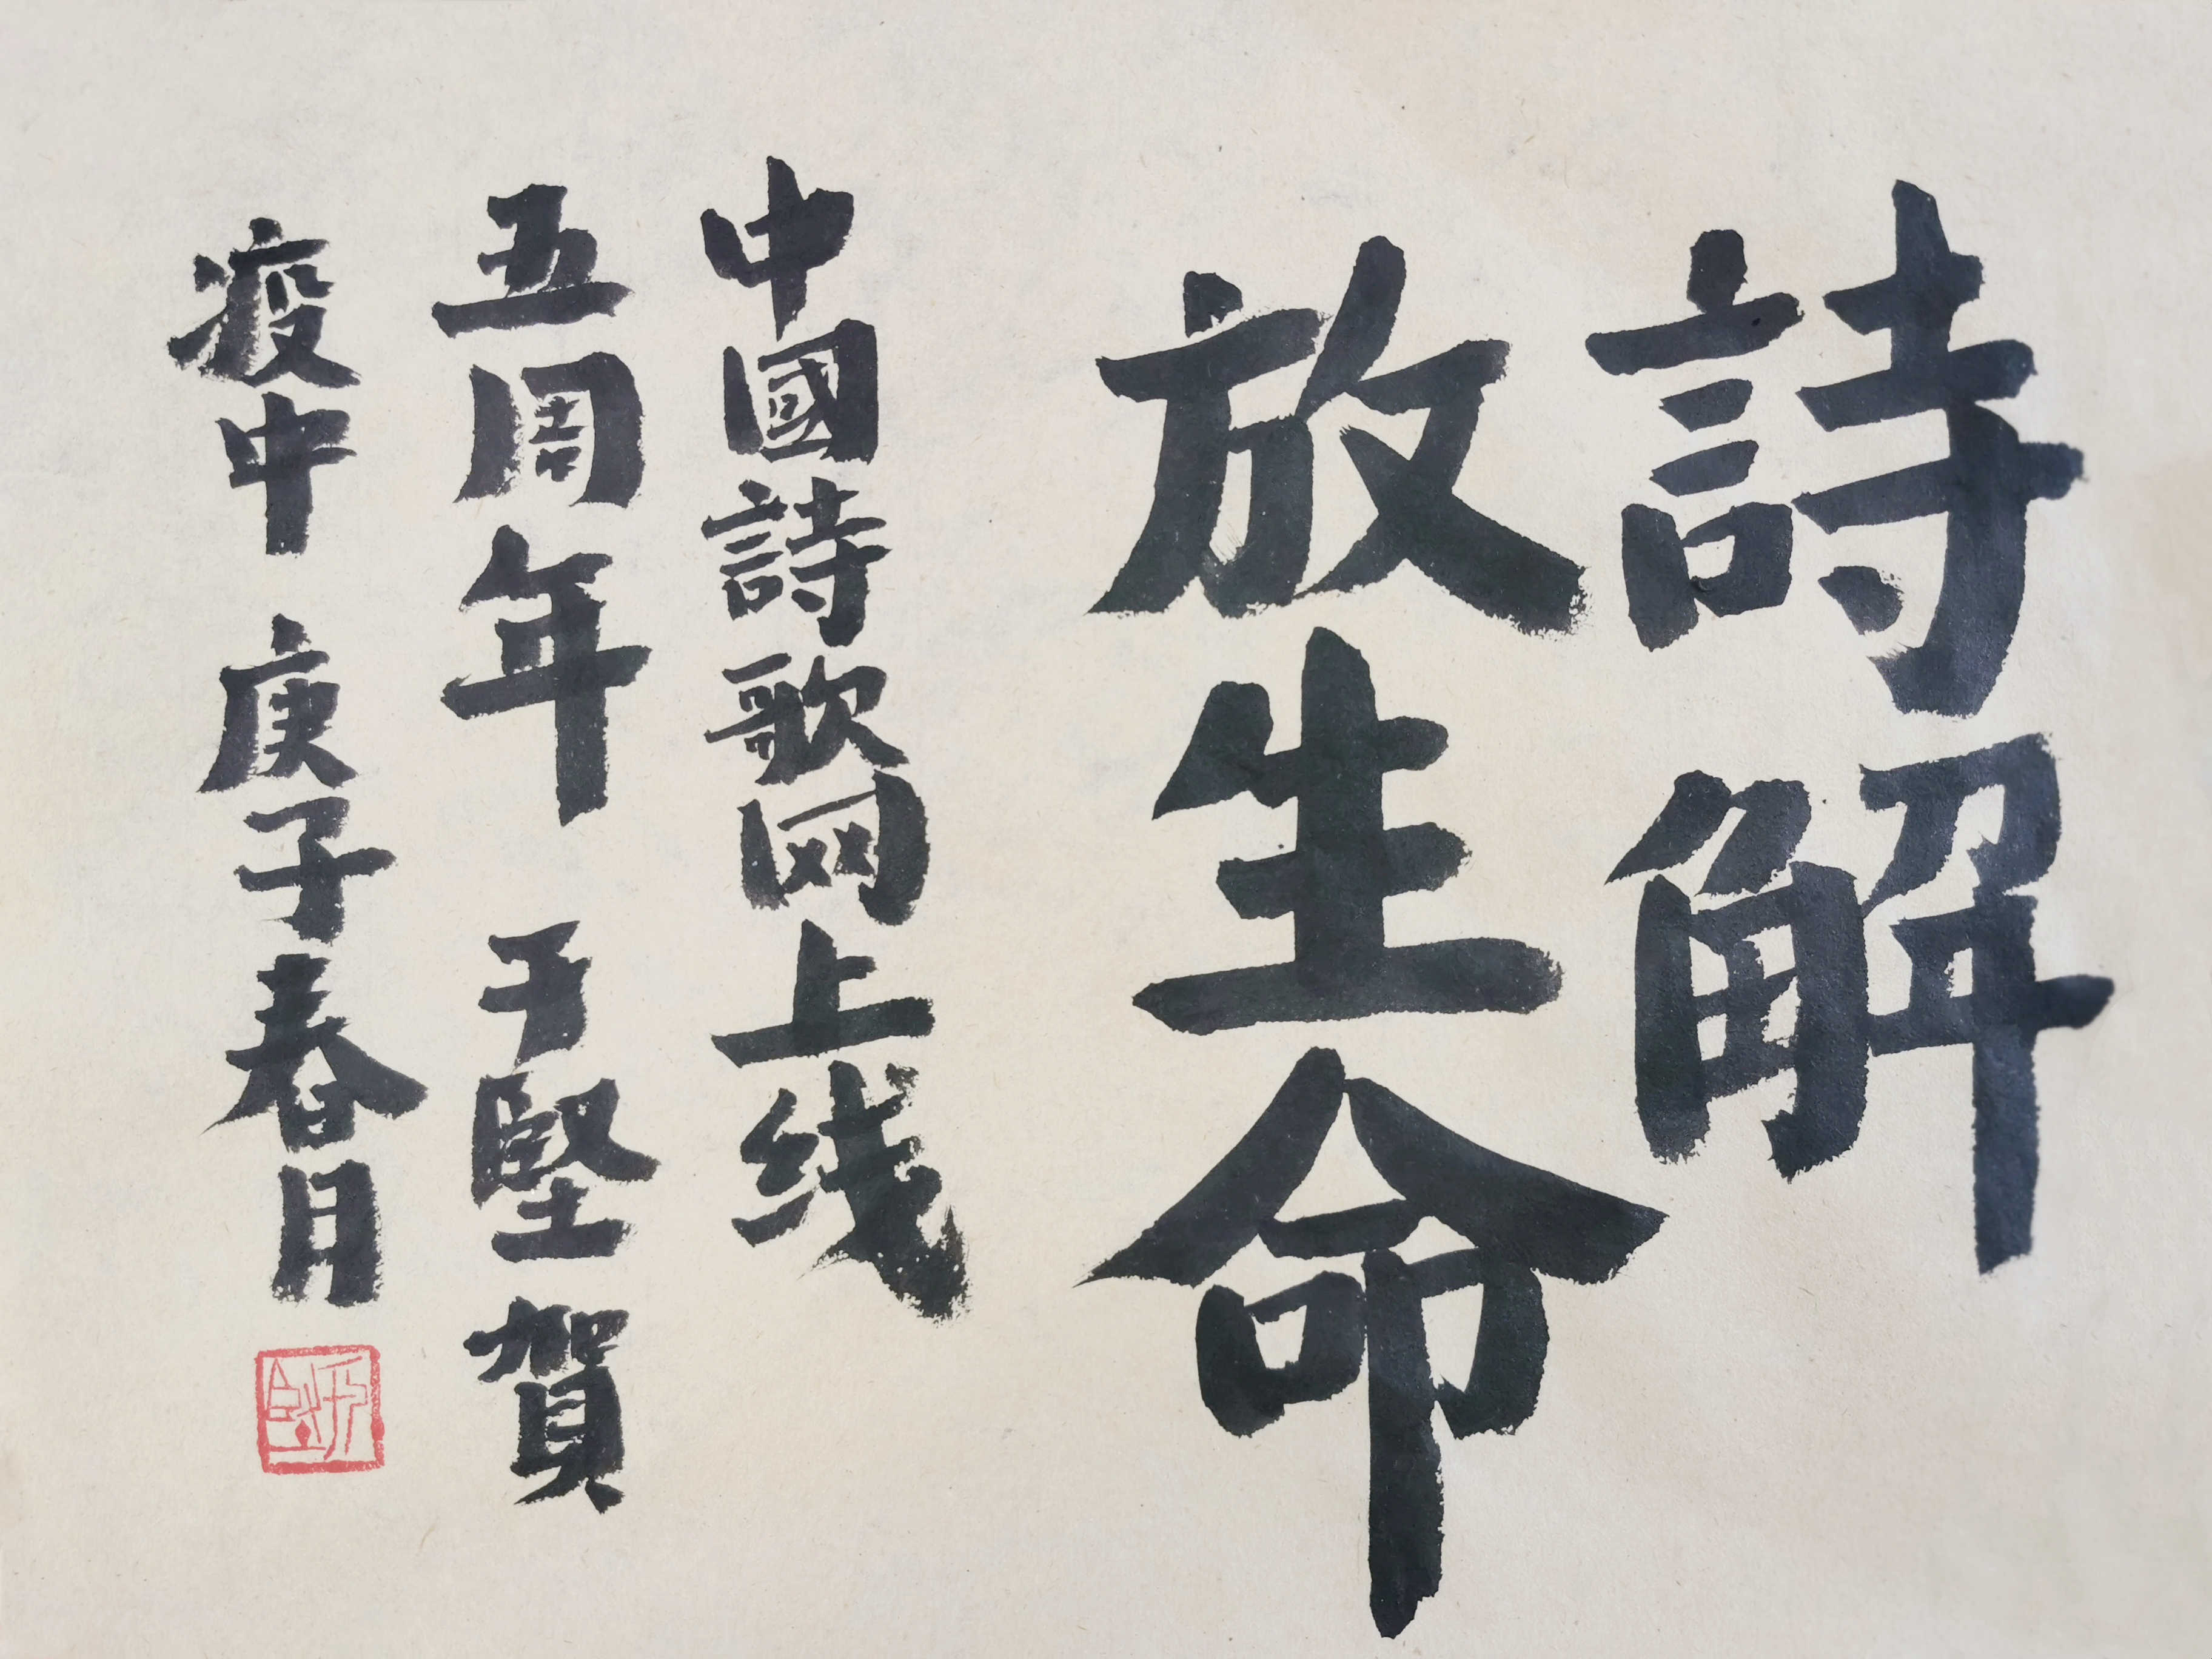 詩解
放生命
中國詩歌网上线
五周年 于堅 賀
疫中 庚子春月